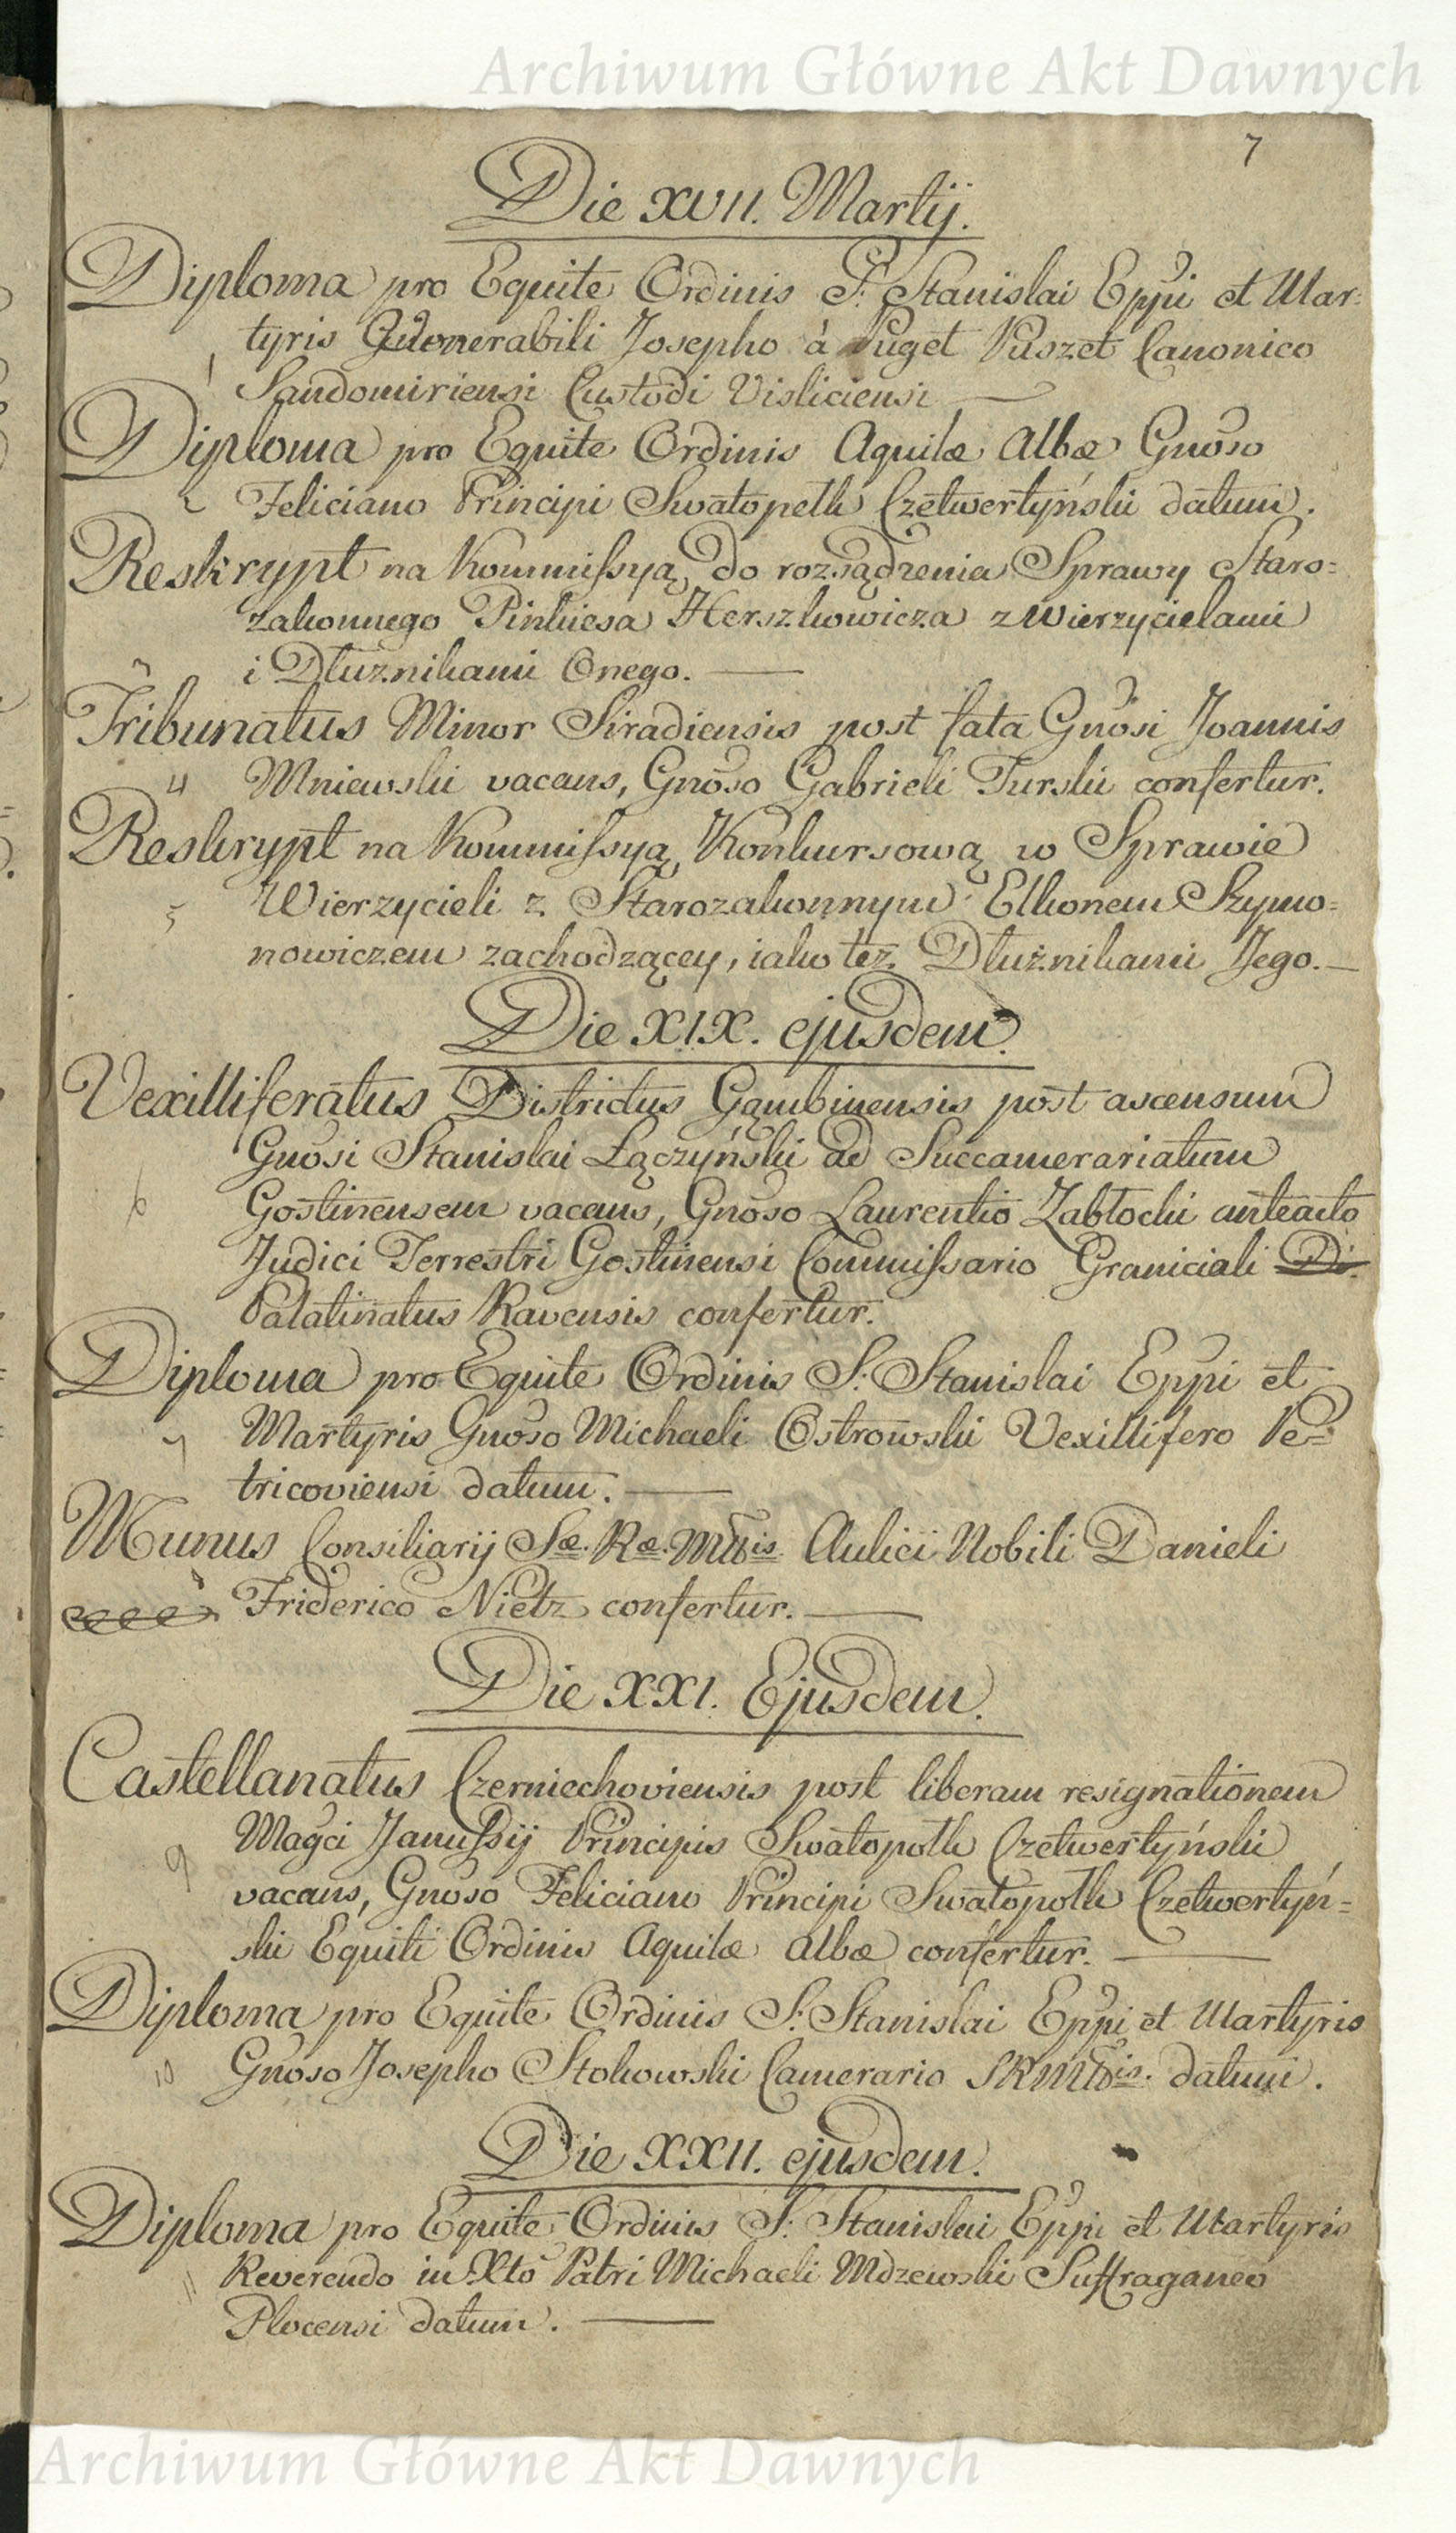 Archiwum Główne Akt Dawnych
7
Die XVII. Martij.
Diploma pro Equite Ordinis S. Stanislai Eppi et Mar:
tyris Josepho à Puget Puszet Canonico
1 Sandomiriensi Custodi Visliciensi
Diploma pro Equite Ordinis Aquilæ Albæ Gnoso
2 Feliciano Principi Swatopelk Czetwertyński datum.
Reskrypt na Kommissyą do rozsądzenia Sprawy Staro=
zakonnego Pinkiesa Herszkowicza z Wierzycielami
3 i Dłużnikami Onego.
Tribunatus Minor Siradiensis post fata Gnosi Joannis
4 Mniewski vacans, Gnoso Gabrieli Turski confertur.
Reskrypt na Kommissyą Konkursową w Sprawie
5 Wierzycieli z Starozakonnym Elkonem Szymo=
nowiczem zachodzącey, iako też Dłużnikami Jego.
Die XIX. ejusdem.
Vexilliferatus Districtus Gąmbinensis post ascensum
Gnosi Stanislai Łączyński ad Succamerariatum
6 Gostinensem vacans, Gnoso Laurentio Zabłocki anteacto
Judici Terrestri Gostinensi Commissario Graniciali Di.
Palatinatus Ravensis confertur.
Diploma pro Equite Ordinis S. Stanislai Eppi et
7 Martyris Gnoso Michaeli Ostrowski Vexillifero Pe=
tricoviensi datum.
Munus Consiliarij Sæ. Ræ. Mttis Aulici Nobili Danieli
8 Friderico Nietz confertur.
Die XXI. Ejusdem.
Castellanatus Czerniechoviensis post liberam resignationem
9 Magci Janussij Principis Swatopołk Czetwertyński
vacans, Gnoso Feliciano Principi Swatopołk Czetwertyń=
ski Equiti Ordinis Aquilæ Albæ confertur.
Diploma pro Equite Ordinis S. Stanislai Eppi et Martyris
10 Gnoso Josepho Stokowski Camerario SRMttis. datum.
Die XXII. ejusdem.
Diploma pro Equite Ordinis S. Stanislai Eppi et Martyris
11 Reverendo in Xto Patri Michaeli Mdzewski Suffraganeo
Plocensi datum.
Archiwum Główne Akt Dawnych